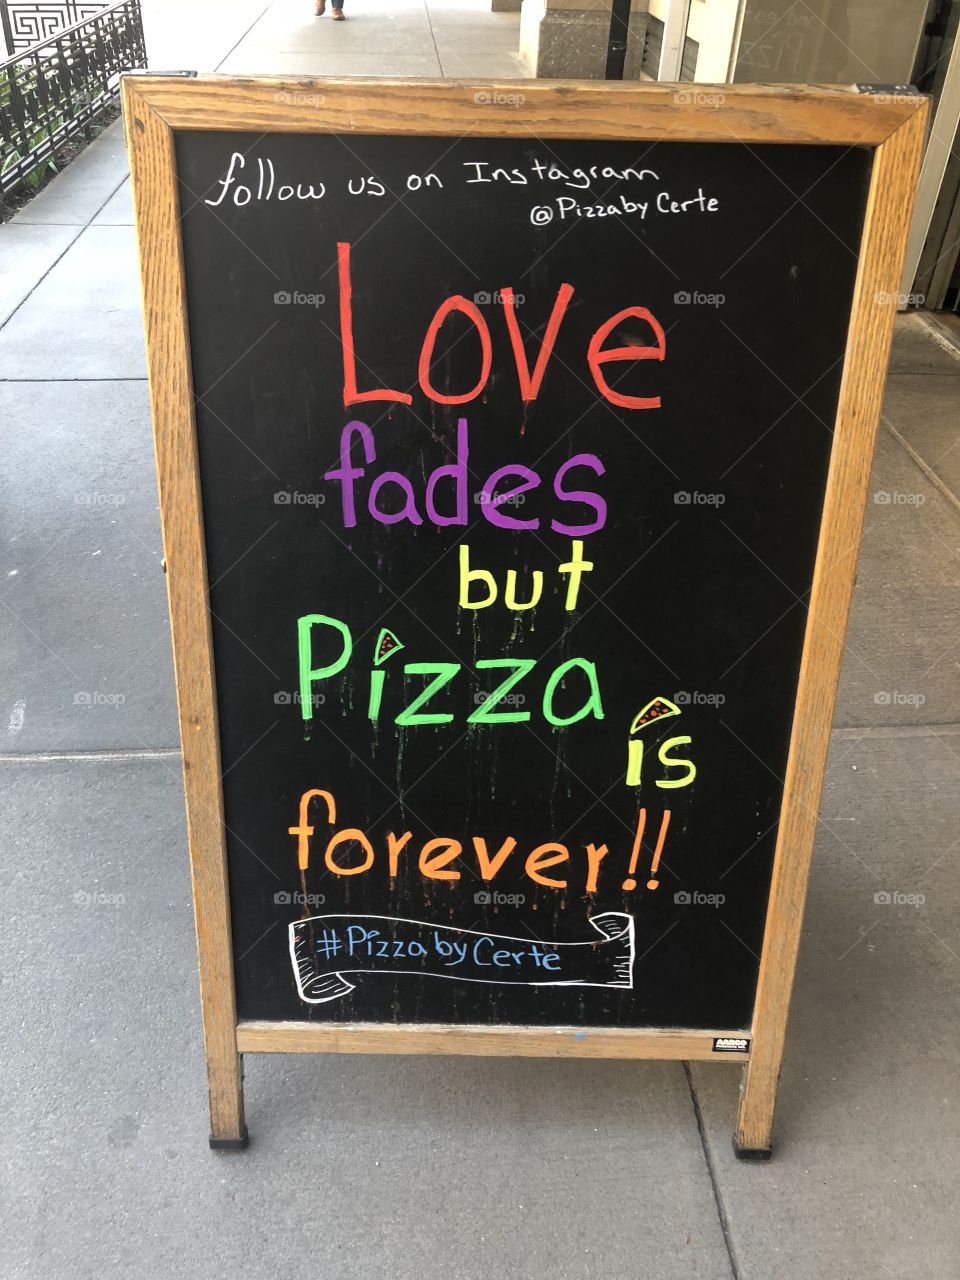 follow us on Instagram
@PizzabyCerte
Love
fades
but
Pizza
is
forever!!
#PizzabyCerte
AARCO
foap